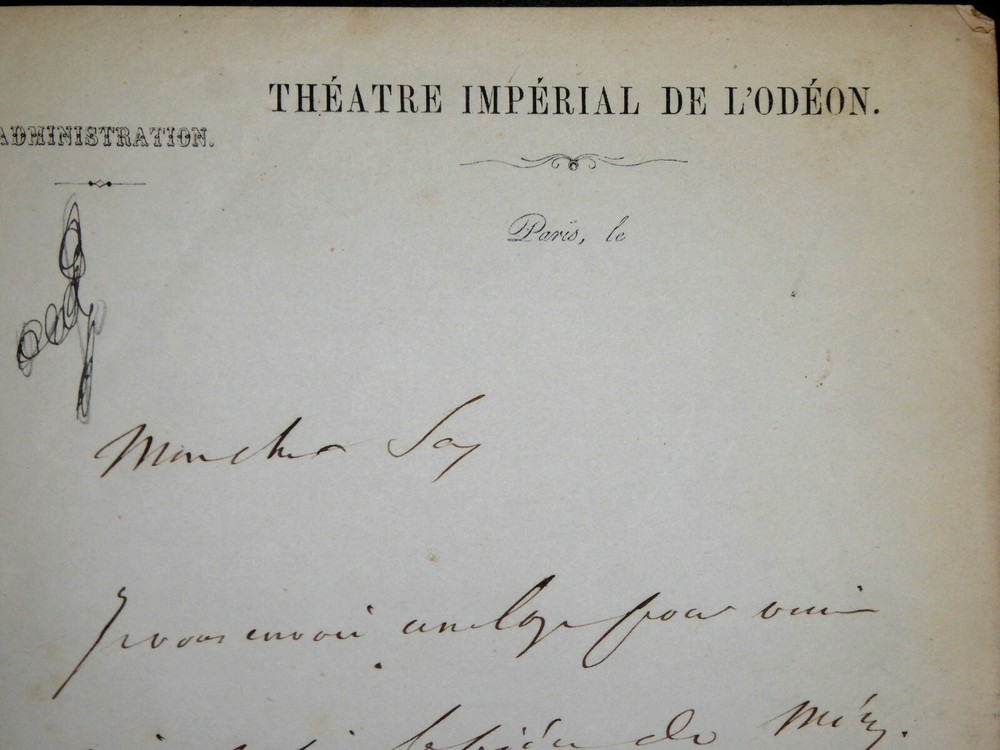 THÉATRE IMPÉRIAL DE L'ODÉON.
ADMINISTRATION.
Paris, le
Mon cher Say
Je vous envoie une loge pour venir
la pièce de Méry.